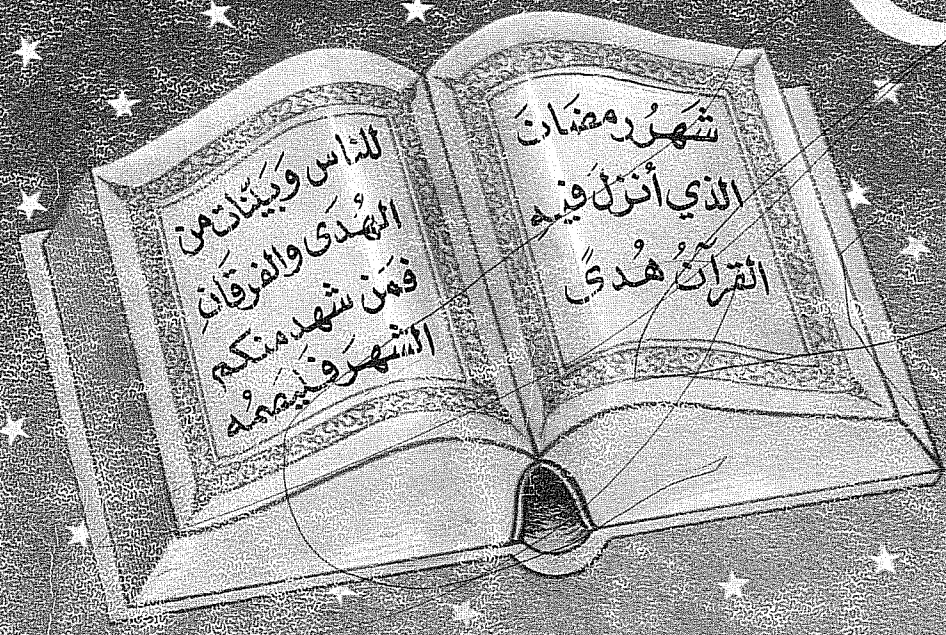 شَهرُ رمضَانَ
الذي أُنزلَ فيه
القرآنُ هُدىً
للناس وَبَيّنَات من
الهُدَى والفرقَانِ
فمَن شهد منكم
الشهرَ فليَصمُه